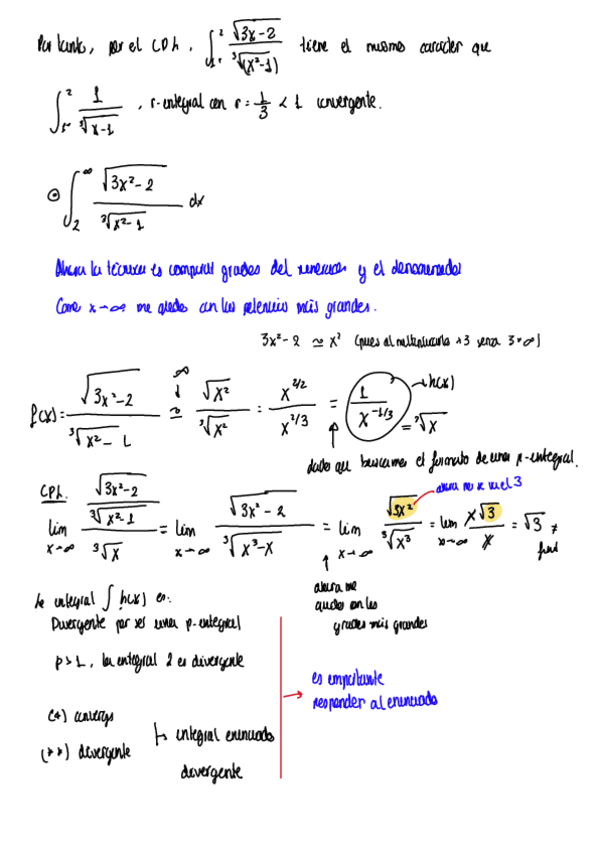 Por tanto, por el CPL, ∫₁₊² √(3x-2) / ∛(x²-1) tiene el mismo carácter que
∫₁₊² 1 / ∛(x-1) , r-integral con r = 1/3 < 1 convergente.
⊙ ∫₂^∞ √(3x²-2) / ∛(x²-1) dx
Ahora la técnica es comparar grados del numerador y el denominador
Como x→∞ me quedo con las potencias más grandes.
3x²-2 ≃ x² (pues al multiplicarlo ×3 sería 3·∞)
f(x) = √(3x²-2) / ∛(x²-1) ≃ √x² / ∛x² = x^(2/2) / x^(2/3) = 1 / x^(-1/3) → h(x)
∞ ↓
= ∛x
dado que buscamos el formato de una p-integral.
CPL. lim x→∞ (√(3x²-2) / ∛(x²-1)) / ∛x = lim x→∞ √(3x²-2) / ∛(x³-x) = lim x→∞ √3x² / ∛x³ = lim x→∞ x√3 / x = √3 ≠
ahora no se va el 3
ahora me
quedo con los
grados más grandes
la integral ∫ h(x) es:
Divergente por ser una p-integral
p > 1, la integral 2 es divergente
(*) converge
(**) divergente
integral enunciado
divergente
es importante
responder al enunciado